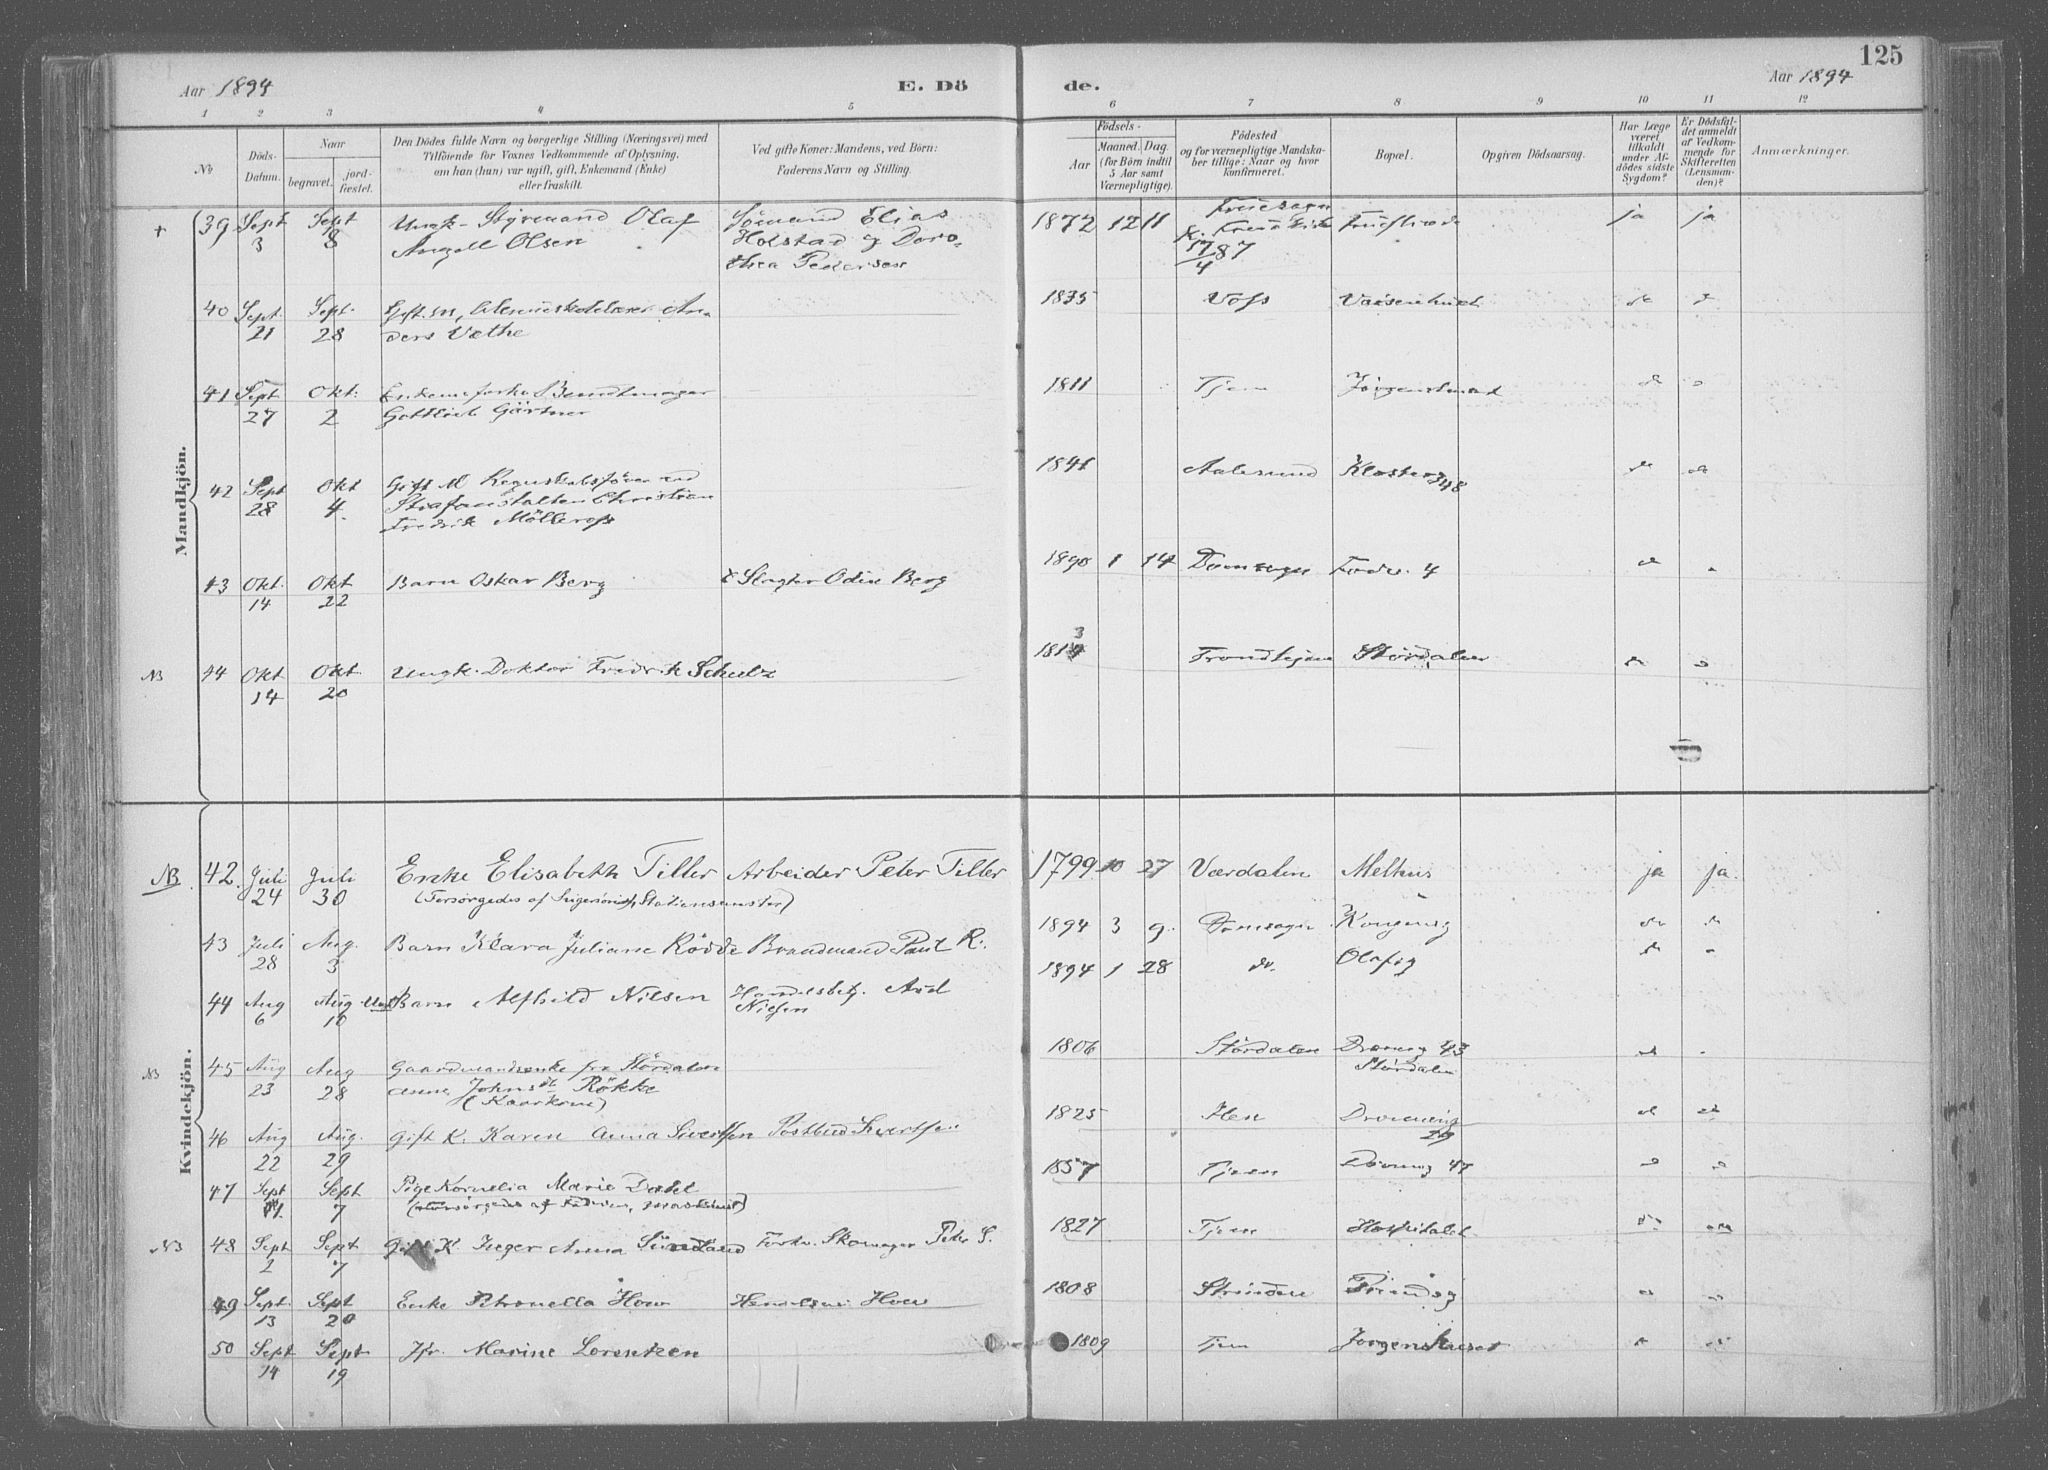 125
Aar 1894
E. Dö
de.
Aar 1894
1 2 3 4 5 6 7 8 9 10 11 12
No
Döds-
Datum.
Naar
begravet.
jord-
fæstet.
Den Dödes fulde Navn og borgerlige Stilling (Næringsvei) med
Tilföiende for Voxnes Vedkommende af Oplysning,
om han (hun) var ugift, gift, Enkemand (Enke)
eller fraskilt.
Ved gifte Koner: Mandens, ved Börn:
Faderens Navn og Stilling.
Födsels-
Aar
Maaned.
Dag.
(for Börn indtil
5 Aar samt
Værnepligtige).
Födested
og for værnepligtige Mandska-
ber tillige: Naar og hvor
konfirmeret.
Bopæl.
Opgiven Dödsaarsag.
Har Læge
været
tilkaldt
under Af-
dödes sidste
Sygdom?
Er Dödsfal-
det anmeldt
af Vedkom-
mende for
Skifteretten
(Lensman-
den)?
Anmærkninger.
Mandkjön.
+ 39 Sept 3 Sept 8 Ungk. Styrmand Olaf
Angell Olsen
Sömand Elias
Holstad og Doro-
thea Pedersen
1872 12 11
17/4 87
ja ja
40 Sept. 21 Sept. 28 Gift M, Anders Væthe
1835 Voss Vaisenhuset do
41 Sept 27 Okt. 2 Buntmager
Gottlieb Gärtner
1811 Tjem
42 Sept 28 Okt 4. Gift M Regnskabsförer ved
Strafanstalten Christian
Fredrik Möllerop
Aalesund Kloster 348
43 Okt. 14 Okt 22 Barn Oskar Berg
Slagter Odin Berg
1890 1 14 Domsogn 4
NB 44 Okt 14 Okt. 20 Ungk. Doktor Fredrik Schulz
1813 Trondhjem Stördalen
Kvindekjön.
NB. 42. Juli 24 Juli 30 Enke Elisabeth Tiller Arbeider Peter Tiller
(Forsörgedes af Stationsmester)
1799 10 27 Værdalen Melhus ja ja.
43 Juli 28 Aug. 3 Barn Klara Juliane Rödde Brandmand Paul R.
1894 3 9. Domsogn Kongensg
44 Aug 6 Aug 10 Barn Alfhild Nilsen Handelsbetj. Axel
Nilsen
1894 1 28 do. Olafsg
NB 45 Aug 23 Aug 28 Gaardmandsenke fra Stördalen
Anna Johnsdt. Rökke
(Kaarkone)
1806 Stördalen Dronng 43
Stördalen
46 Aug 22 Aug. 29 Gift K. Karen Anna Sivertsen Postbud Sivertsen
1825 Ilen Dronning 29
47 Sept 1. Sept 7 Pige Kornelia Marie Dahl
1857 Tjem Dronng 47
NB 48 Sept 2 Sept 7 Gift K. Inger Anna Sundland Forhv. Skomager Peter S.
1827 Tjem Hospitalet
49 Sept. 13 Sept 20 Enke Petronella How How
1808 Strinden Prindsg
50 Sept 14 Sept 19 Jfr. Marine Lorentzen
1809 Tjem Jörgenshuset